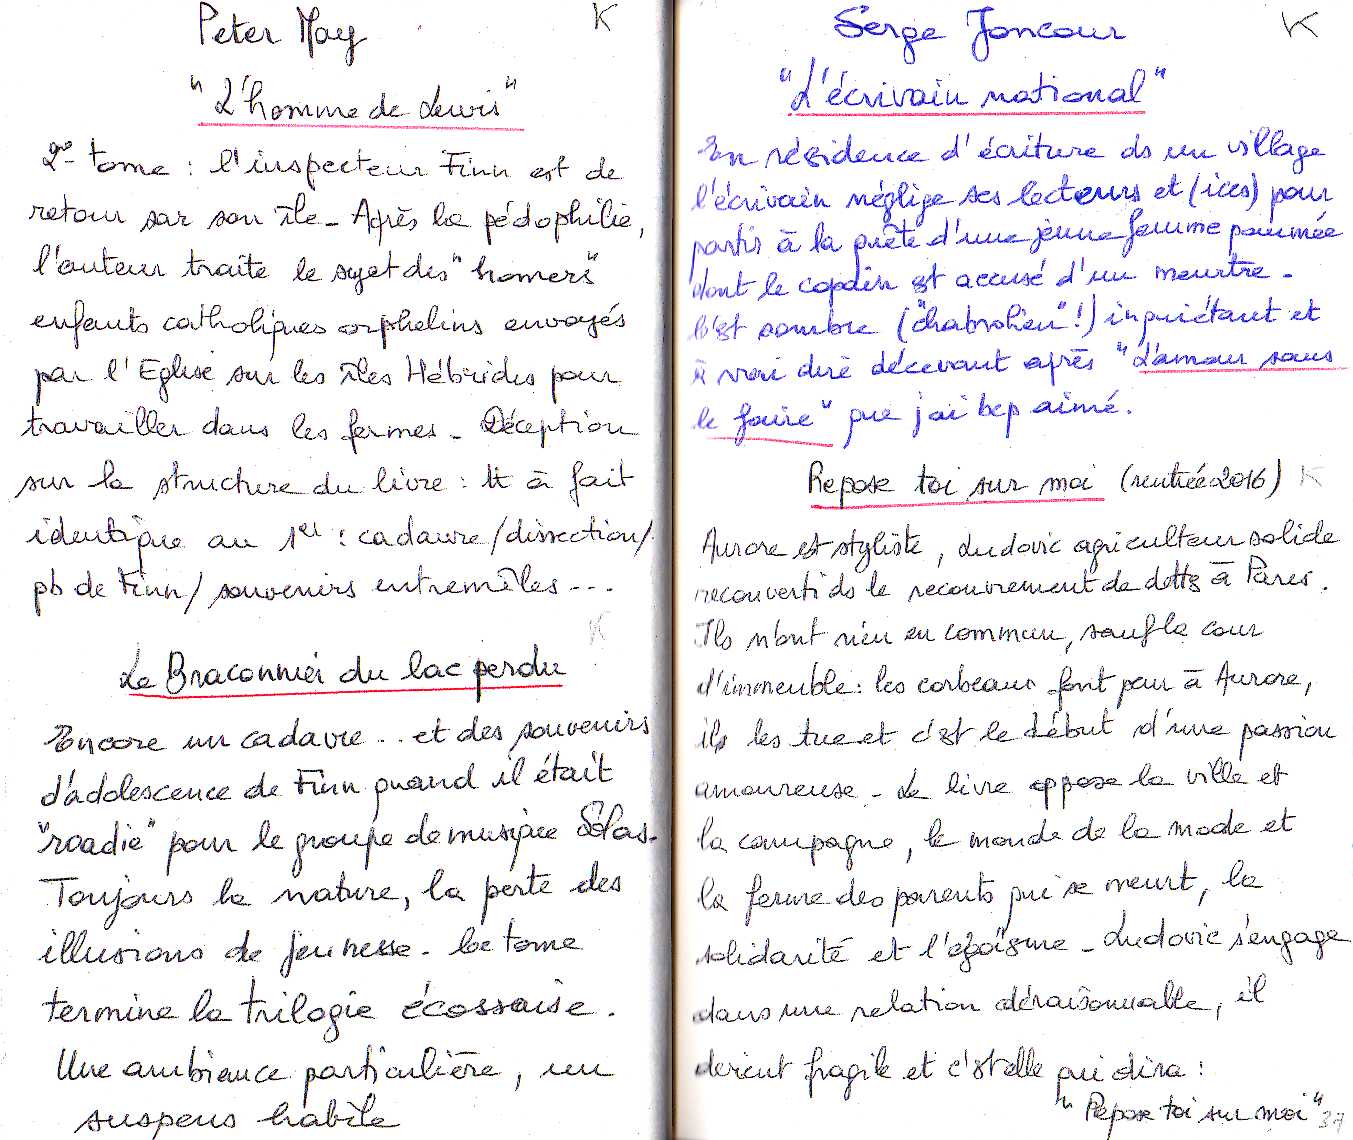 Peter May K
"L'homme de Lewis"
2e tome : l'inspecteur Finn est de
retour sur son île - Après la pédophilie,
l'auteur traite le sujet des "homers"
enfants catholiques orphelins envoyés
par l'Eglise sur les îles Hébrides pour
travailler dans les fermes - Déception
sur la structure du livre : tt à fait
identique au 1er : cadavre/dissection/
pb de Finn/ souvenirs entremêles ...
K
Le Braconnier du lac perdu
Encore un cadavre .. et des souvenirs
d'adolescence de Finn quand il était
"roadie" pour le groupe de musique Sólas.
Toujours la nature, la perte des
illusions de jeunesse - Ce tome
termine la trilogie écossaise.
Une ambiance particulière, un
suspens habile
Serge Joncour K
"L'écrivain national"
En résidence d'écriture ds un village
l'écrivain néglige ses lecteurs et (ices) pour
partir à la quête d'une jeune femme paumée
dont le copain est accusé d'un meurtre -
C'est sombre ("chabrolien"!) inquiétant et
à vrai dire décevant après "L'amour sans
le faire" que j'ai bcp aimé.
Repose toi sur moi (rentrée 2016) K
Aurore est styliste, Ludovic agriculteur solide
reconverti ds le recouvrement de dettes à Paris.
Ils n'ont rien en commun, sauf la cour
d'immeuble : les corbeaux font peur à Aurore,
il les tue et c'est le début d'une passion
amoureuse - Le livre oppose la ville et
la campagne, le monde de la mode et
la ferme des parents qui se meurt, la
solidarité et l'égoïsme - Ludovic s'engage
dans une relation déraisonnable, il
devient fragile et c'est elle qui dira :
"Repose toi sur moi" 37